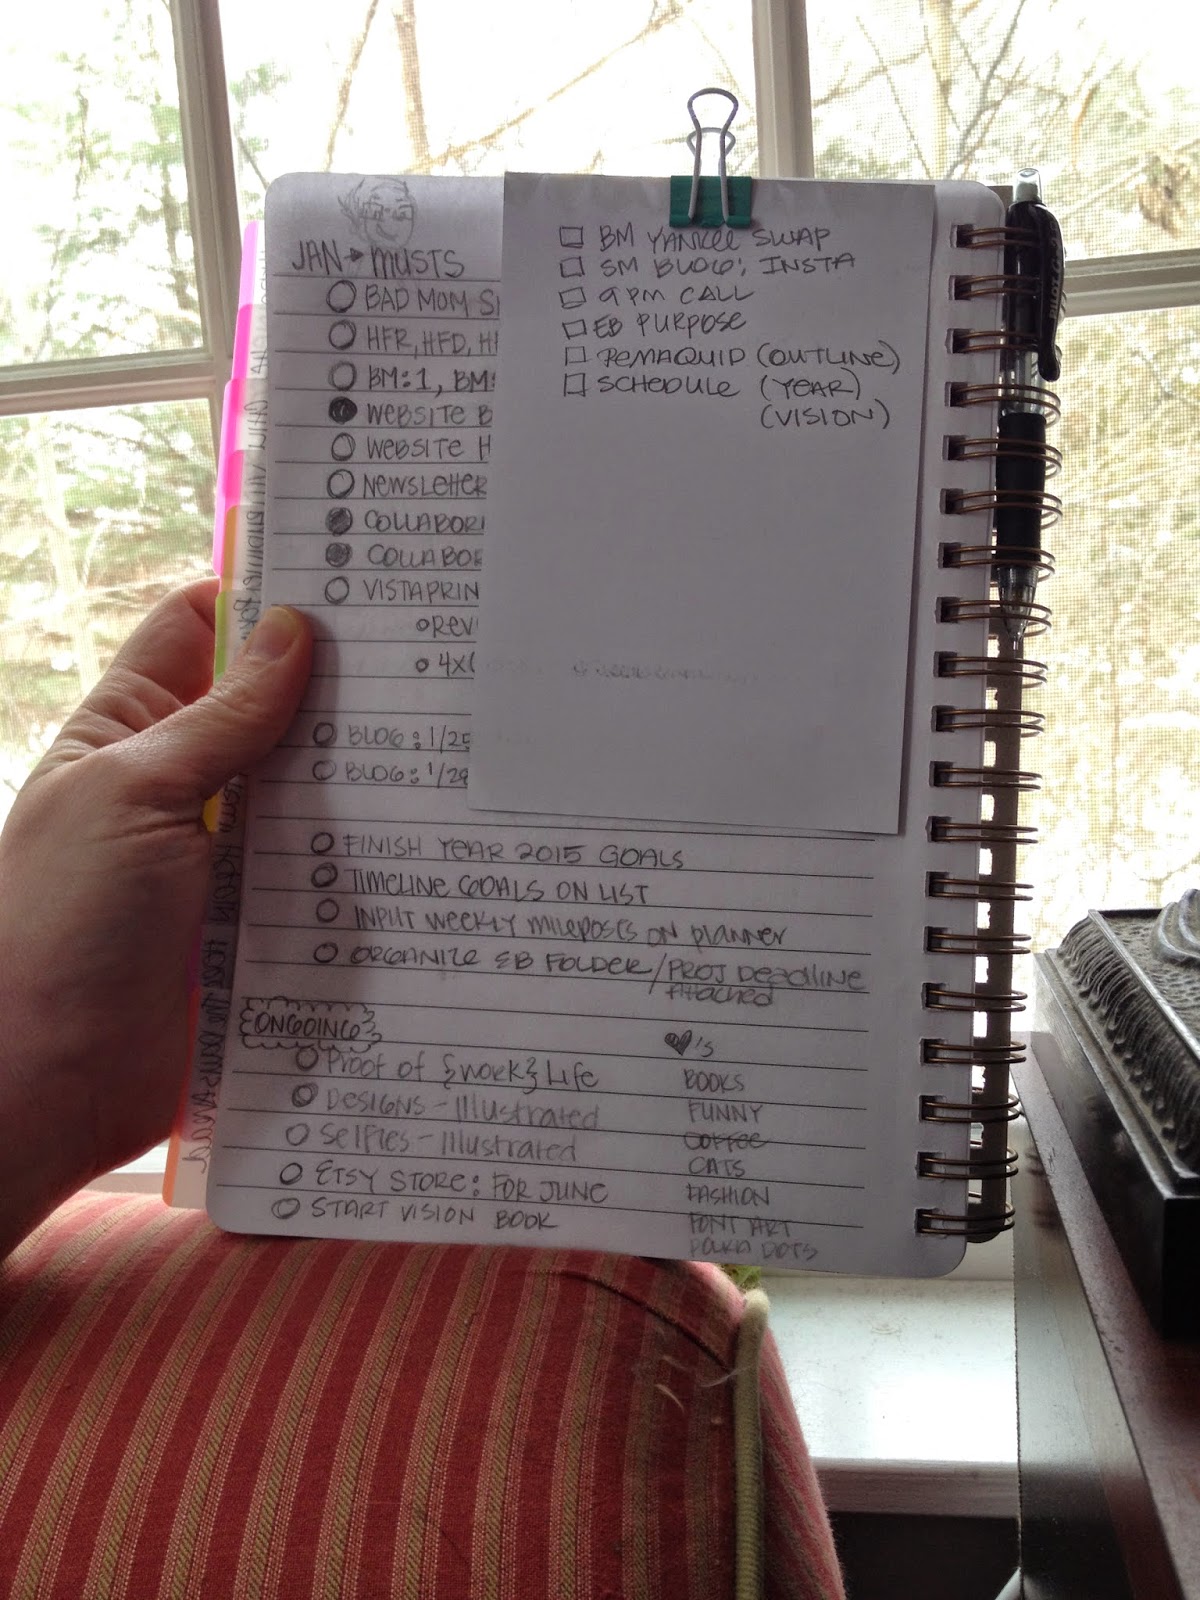 JAN → MUSTS
BAD MOM S
HFR, HFD, H
BM: 1, BM:
WEBSITE B
WEBSITE H
NEWSLETTER
COLLABOR
COLLABOR
VISTAPRIN
REV
4x
BLOG: 1/25
BLOG: 1/29
BM YANKEE SWAP
SM BLOG; INSTA
9 PM CALL
EB PURPOSE
PEMAQUID (OUTLINE)
SCHEDULE (YEAR)
(VISION)
FINISH YEAR 2015 GOALS
TIMELINE GOALS ON LIST
INPUT WEEKLY MILEPOSTS ON PLANNER
ORGANIZE EB FOLDER/PROJ DEADLINE
ATTACHED
ONGOING
PROOF OF {WORK} LIFE
DESIGNS - ILLUSTRATED
SELFIES - ILLUSTRATED
ETSY STORE: FOR JUNE
START VISION BOOK
♥'S
BOOKS
FUNNY
COFFEE
CATS
FASHION
FONT ART
POLKA DOTS